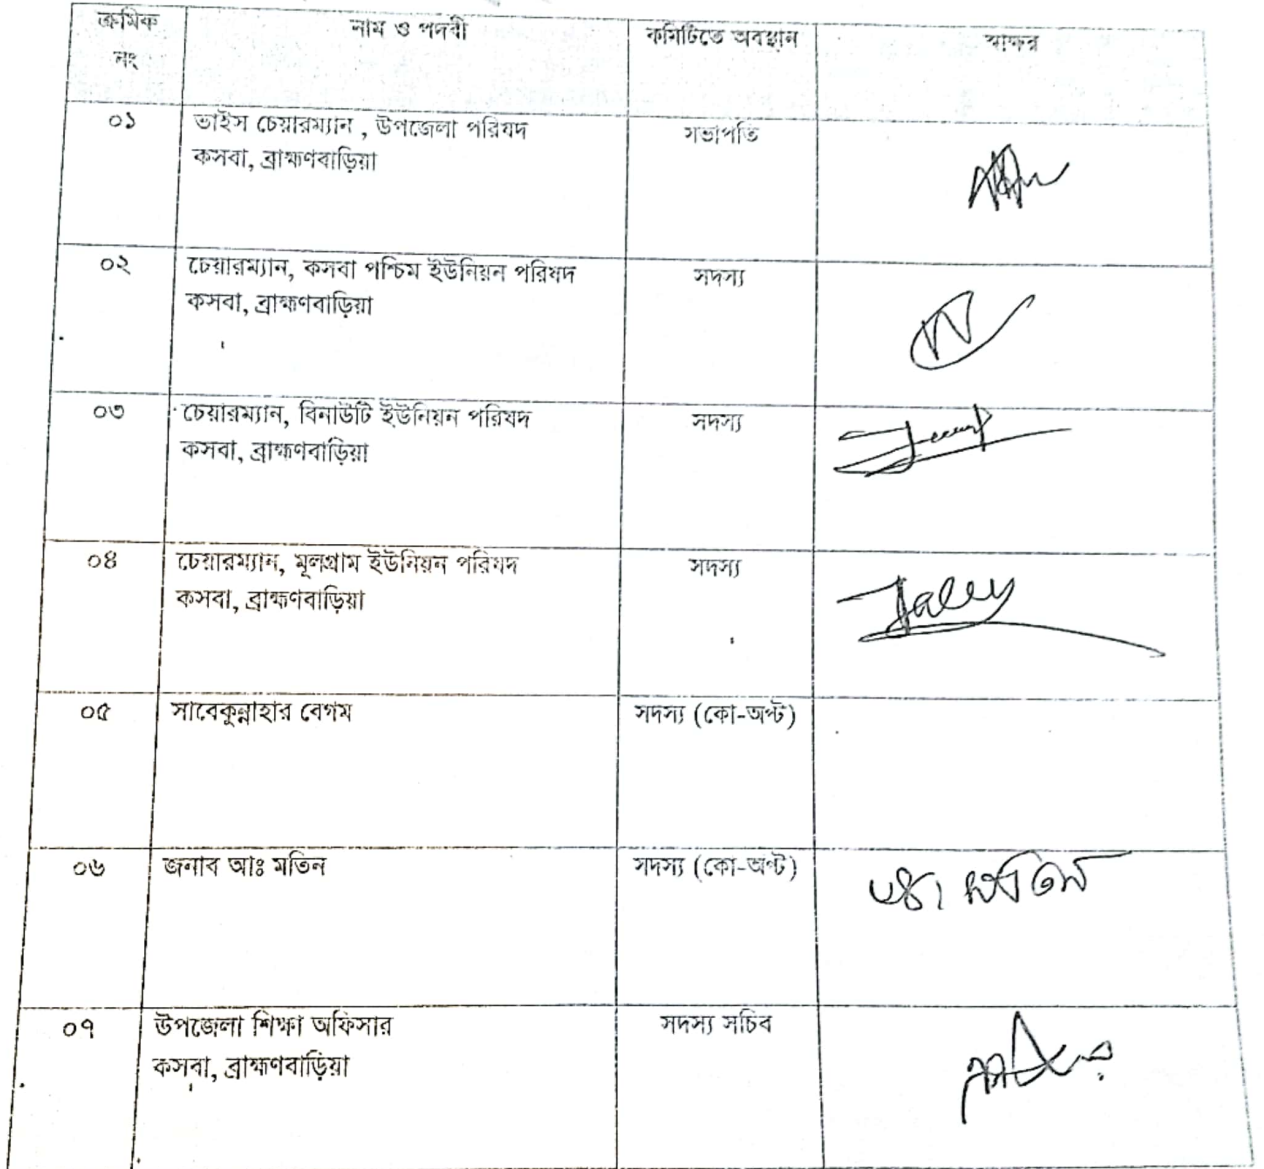 ক্রমিক নং	নাম ও পদবী	কমিটিতে অবস্থান	স্বাক্ষর
০১	ভাইস চেয়ারম্যান , উপজেলা পরিষদ	সভাপতি
কসবা, ব্রাহ্মণবাড়িয়া
০২	চেয়ারম্যান, কসবা পশ্চিম ইউনিয়ন পরিষদ	সদস্য
কসবা, ব্রাহ্মণবাড়িয়া
০৩	চেয়ারম্যান, বিনাউটি ইউনিয়ন পরিষদ	সদস্য
কসবা, ব্রাহ্মণবাড়িয়া
০৪	চেয়ারম্যান, মূলগ্রাম ইউনিয়ন পরিষদ	সদস্য
কসবা, ব্রাহ্মণবাড়িয়া
০৫	সাবেকুন্নাহার বেগম	সদস্য (কো-অপ্ট)
০৬	জনাব আঃ মতিন	সদস্য (কো-অপ্ট)	আঃ মতিন
০৭	উপজেলা শিক্ষা অফিসার	সদস্য সচিব
কসবা, ব্রাহ্মণবাড়িয়া